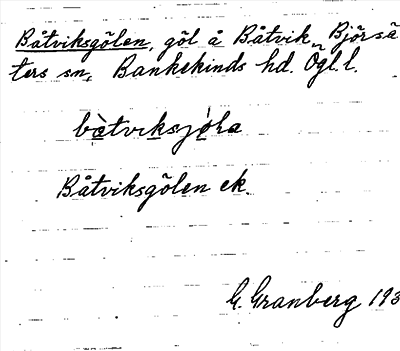 Båtviksgölen, göl å Båtvik, Björsä
ters sn, Bankekinds hd. Ögl. l.
bàtviksjȯ́la
Båtviksgölen ek.
G. Granberg 193